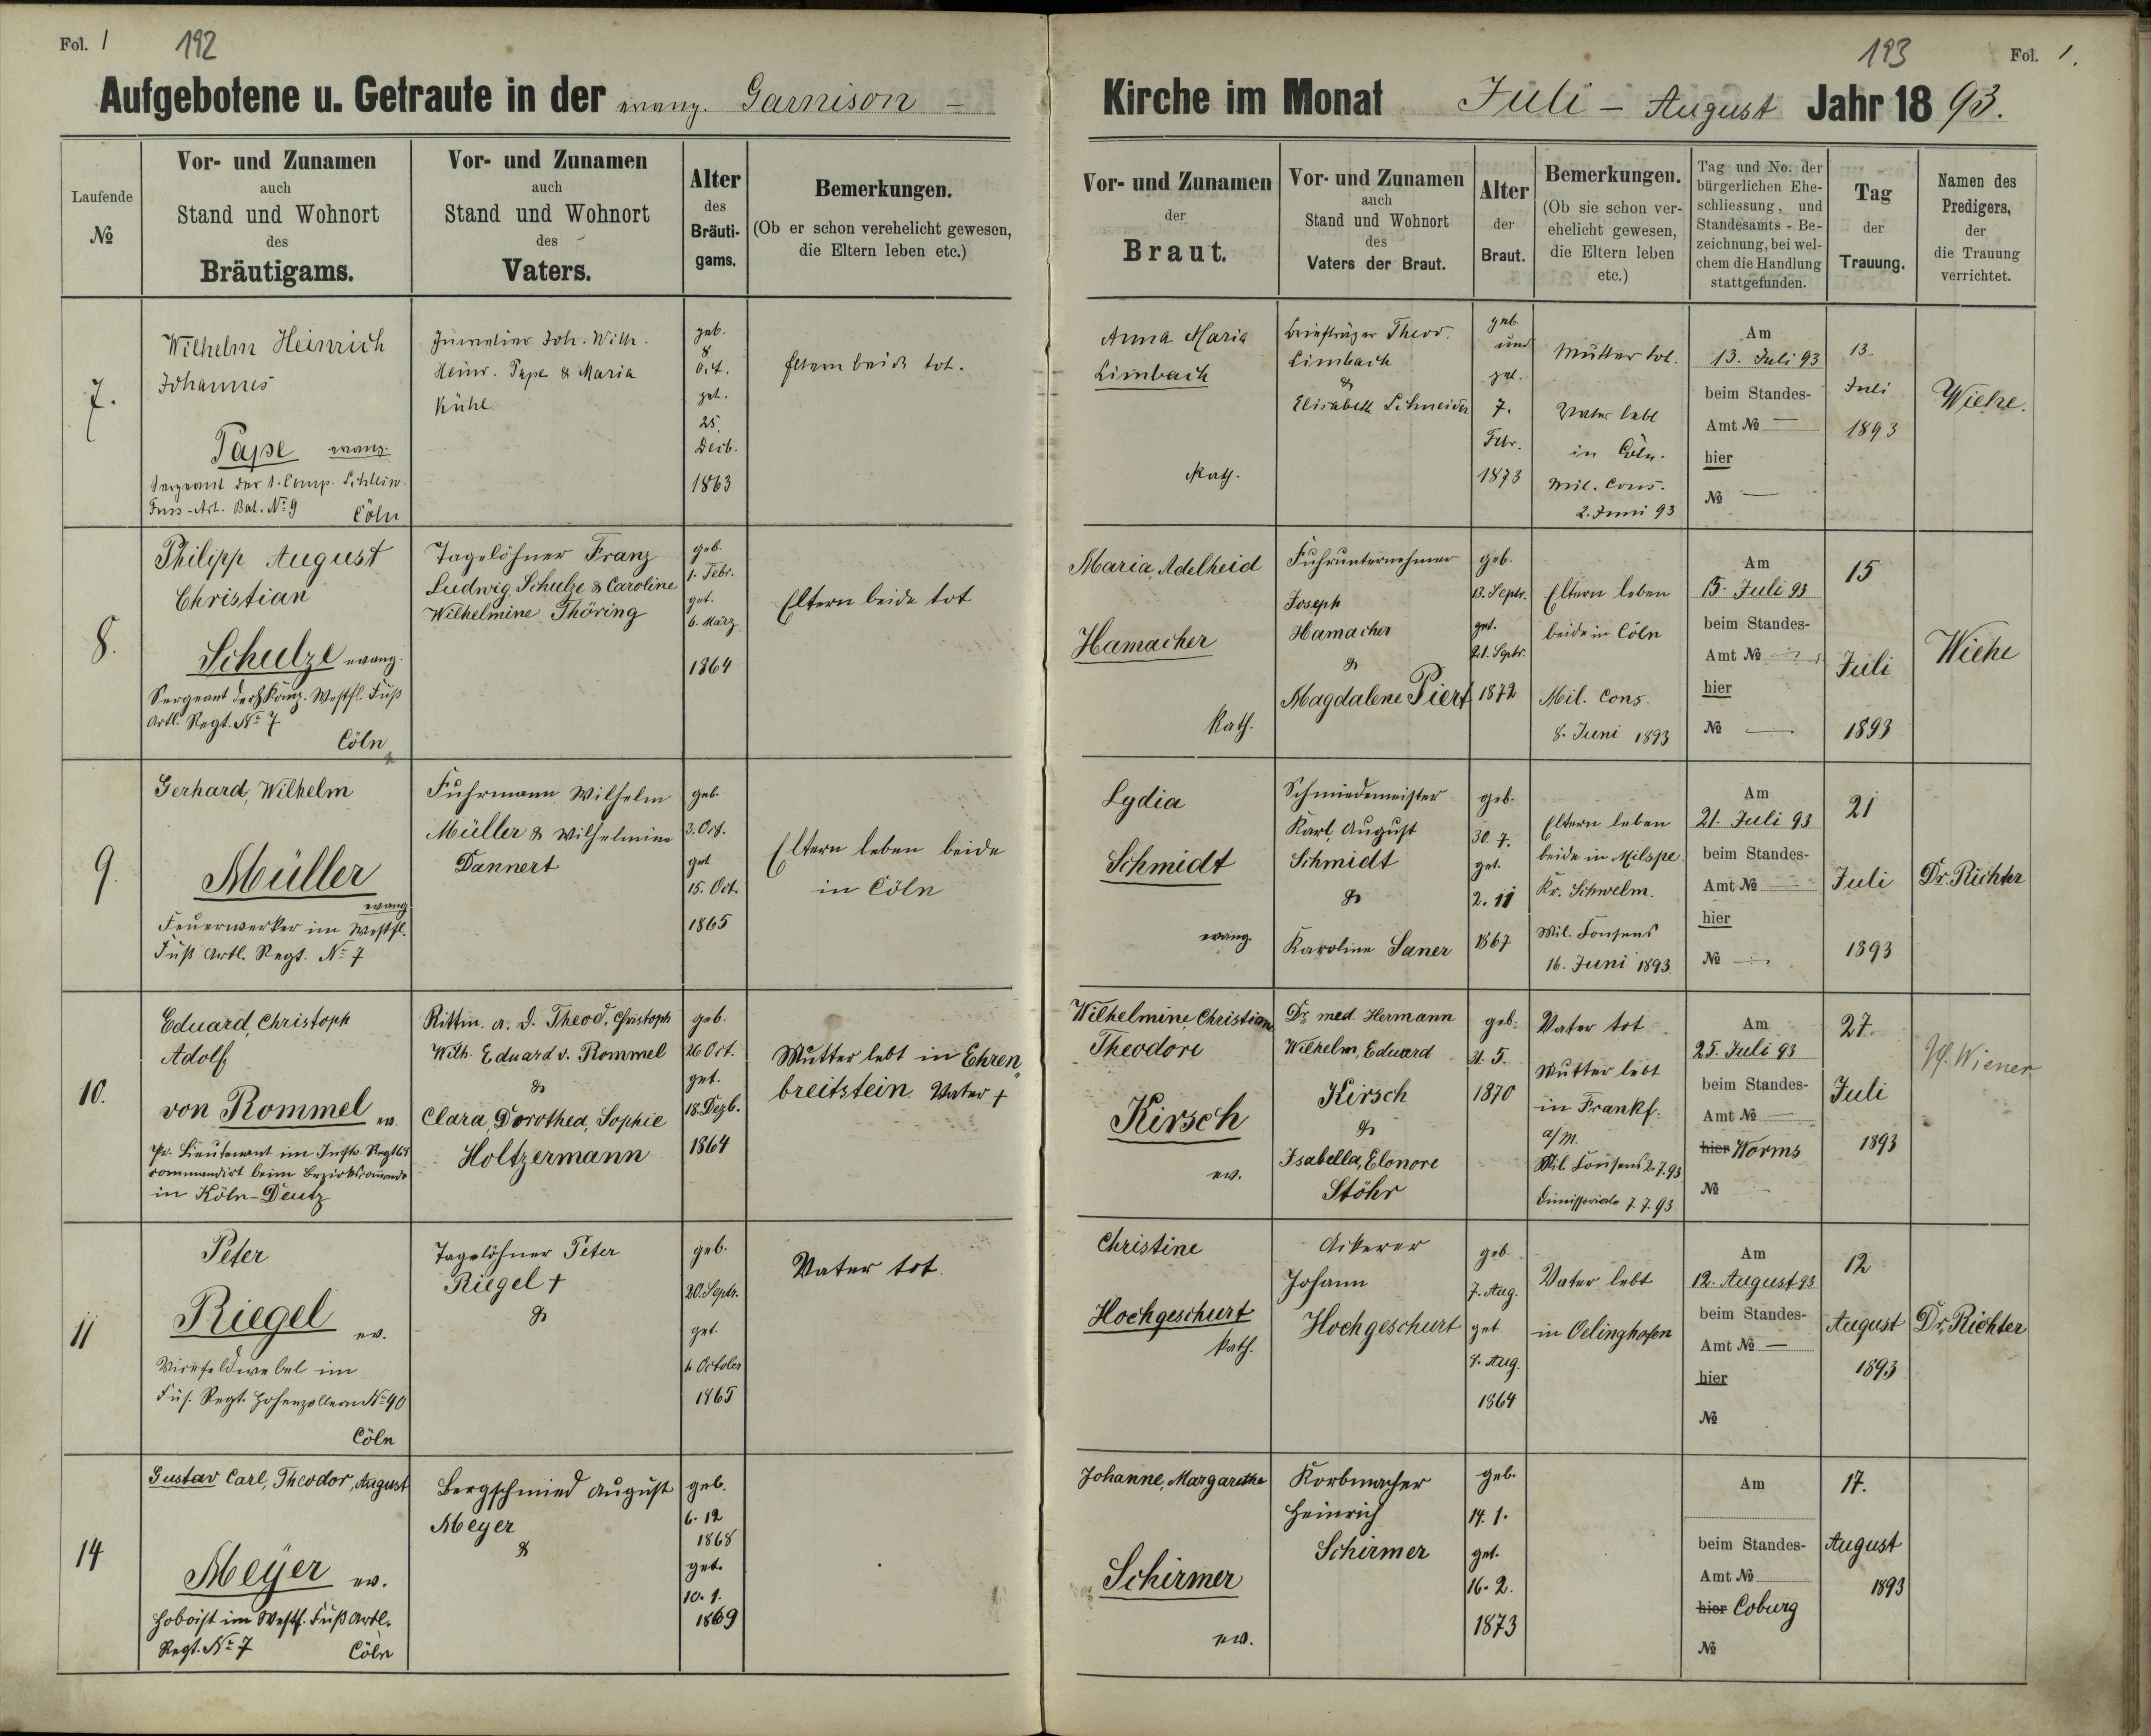 Fol. 1
192
Aufgebotene u. Getraute in der evang. Garnison -
Laufende
№
Vor- und Zunamen
auch
Stand und Wohnort
des
Bräutigams.
Vor- und Zunamen
auch
Stand und Wohnort
des
Vaters.
Alter
des
Bräuti-
gams.
Bemerkungen.
(Ob er schon verehelicht gewesen,
die Eltern leben etc.)
7.
Wilhelm Heinrich
Johannes
Pape evang.
Sergeant der 1. Comp. Schlesw.
Fuss-Art. Bat. № 9
Cöln
Juwelier Joh. Wilh.
Heinr. Pape & Maria
Kühl
geb.
8
Oct.
get.
25.
Decb.
1863
Eltern beide tot.
8.
Philipp August
Christian
Schulze evang.
Sergeant der Komp. Westfl. Fuß
Artl. Regt. № 7
Cöln
Tagelöhner Franz
Ludwig Schulze & Caroline
Wilhelmine Thöring
geb.
1. Febr.
get.
6. März
1864
Eltern beide tot
9.
Gerhard, Wilhelm
Müller
evang.
Feuerwerker im Westfl.
Fuß Artl. Regt. № 7
Fuhrmann Wilhelm
Müller & Wilhelmine
Dannert
geb.
3. Oct.
get
15. Oct.
1865
Eltern leben beide
in Cöln
10.
Eduard, Christoph
Adolf
von Rommel ev.
Pr. Lieutenant im Inftr. Regt 65
commandirt beim Bezirkscommando
in Köln-Deutz
Rittm. a. D. Theod. Christoph
Wilh. Eduard v. Rommel
&
Clara, Dorothea, Sophie
Holtzermann
geb.
26 Oct.
get.
18. Dezb.
1864
Mutter lebt in Ehren„
breitstein. Vater +
11
Peter
Riegel ev.
Vicefeldwebel im
Füs. Regt. Hohenzollern № 40
Cöln
Tagelöhner Peter
Riegel +
&
geb.
20. Septr.
get.
October
1865
Vater tot.
14
Gustav Carl, Theodor, August
Meyer ev.
Hoboist im Westf. Fuß Artl.
Regt. № 7
Cöln
Bergschmied August
Meyer
&
geb.
6. 12
1868
get.
10. 1.
1869
193
Fol. 1.
Kirche im Monat Juli - August Jahr 1893.
Vor- und Zunamen
der
Braut.
Vor- und Zunamen
auch
Stand und Wohnort
des
Vaters der Braut.
Alter
der
Braut.
Bemerkungen.
(Ob sie schon ver-
ehelicht gewesen,
die Eltern leben
etc.)
Tag und No. der
bürgerlichen Ehe-
schliessung, und
Standesamts-Be-
zeichnung, bei wel-
chem die Handlung
stattgefunden.
Tag
der
Trauung.
Namen des
Predigers,
der
die Trauung
verrichtet.
Anna Maria
Limbach
Kath.
Briefträger Theod.
Limbach
&
Elisabeth Schneider
geb
und
get.
7.
Febr.
1873
Mutter tot.
Vater lebt
in Cöln.
Mil. Cons.
2. Juni 93
Am
13. Juli 93
beim Standes-
Amt № —
hier
№ —
13.
Juli
1893
Wiehe.
Maria, Adelheid
Hamacher
Kath.
Fuhrunternehmer
Joseph
Hamacher
&
Magdalene Piert
geb.
13. Septr.
get.
21. Septr.
1872
Eltern leben
beide in Cöln
Mil. Cons.
8. Juni 1893
Am
15. Juli 93
beim Standes-
Amt №
hier
№ —
15
Juli
1893
Wiehe
Lydia
Schmidt
evang.
Schmiedemeister
Karl, August
Schmidt
&
Karoline Saner
geb.
30. 7.
get.
2. 11
1867
Eltern leben
beide in Milspe
Kr. Schwelm.
Mil. Consens
16. Juni 1893
Am
21. Juli 93
beim Standes-
Amt № —
hier
№ —
21
Juli
1893
Dr. Richter
Wilhelmine, Christiane
Theodore
Kirsch
ev.
Dr. med. Hermann
Wilhelm, Eduard
Kirsch
&
Isabella, Elonore
Stöhr
geb.
31. 5.
1870
Vater tot
Mutter lebt
in Frankf.
a/M.
Mil. Consens 2.7.93
Dimissoriale 7.7.93
Am
25. Juli 93
beim Standes-
Amt № —
hier Worms
№
27.
Juli
1893
Pf. Wiener
Christine
Hochgeschurt
Kath.
Ackerer
Johann
Hochgeschurt
geb.
7. Aug.
get
8. Aug.
1864
Vater lebt
in Oelinghofen
Am
12. August 93
beim Standes-
Amt № —
hier
№
12
August
1893
Dr. Richter
Johanne, Margarethe
Schirmer
ev.
Korbmacher
Heinrich
Schirmer
geb.
14. 1.
get.
16. 2.
1873
Am
beim Standes-
Amt №
hier Coburg
№
17.
August
1893